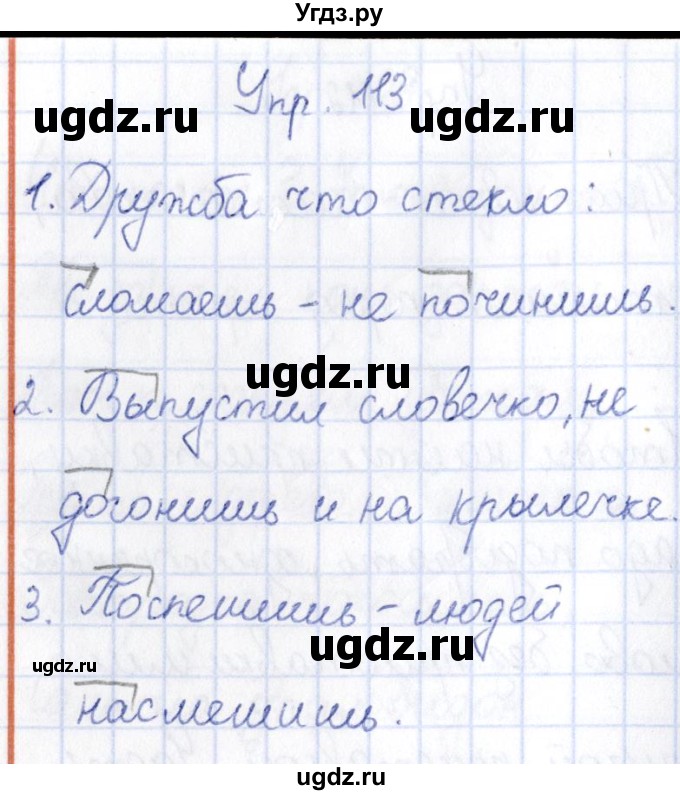 Угдз.ру
Упр. 113
ugdz.ru ugdz.ru
1. Дружба, что стекло:
сломаешь - не починишь.
ugdz.ru
2. Выпустил словечко, не
догонишь и на крылечке.
3. Поспешишь - людей
ugdz.ru ugdz.ru
насмешишь.
ugdz.ru